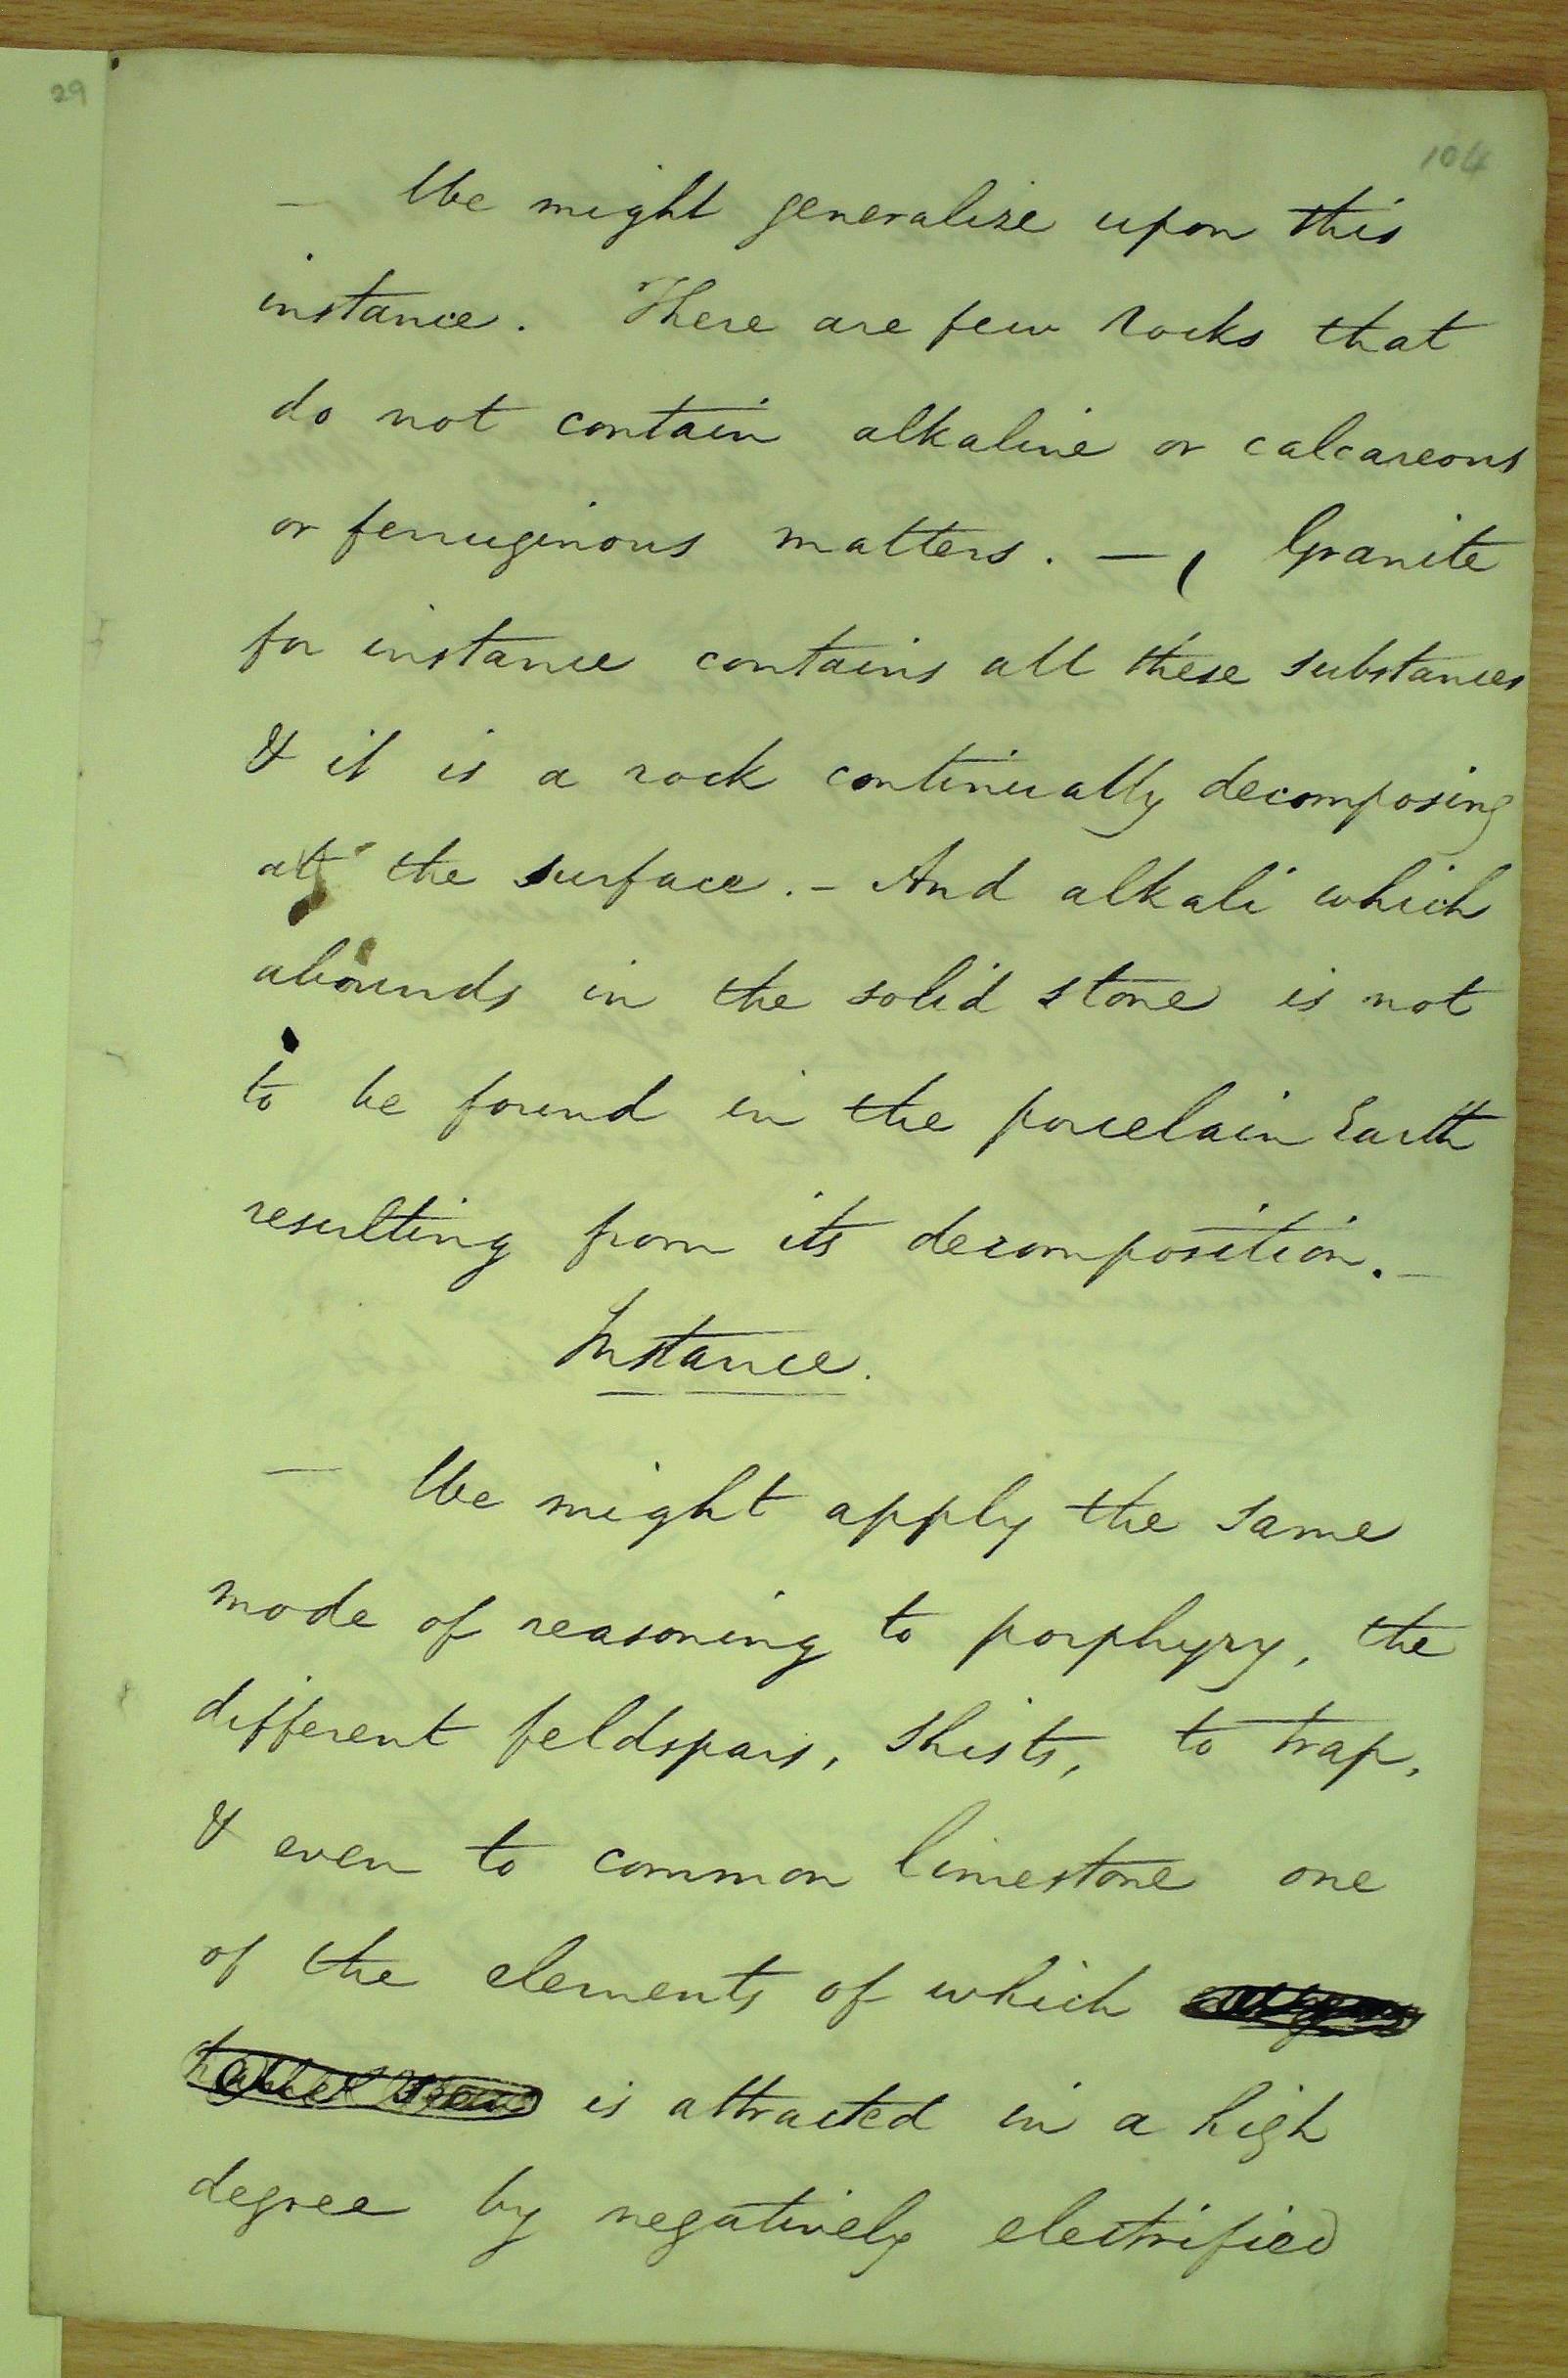 29
104
— We might generalize upon this
instance. There are few rocks that
do not contain alkaline or calcareous
or ferruginous matters. — , Granite
for instance contains all these substances
& it is a rock continually decomposing
at the surface. - And alkali which
abounds in the solid stone is not
to be found in the porcelain Earth
resulting from its decomposition. —
Instance.
— We might apply the same
mode of reasoning to porphyry, the
different feldspars, shists, to trap,
& even to common limestone one
of the elements of which
is attracted in a high
degree by negatively electrified